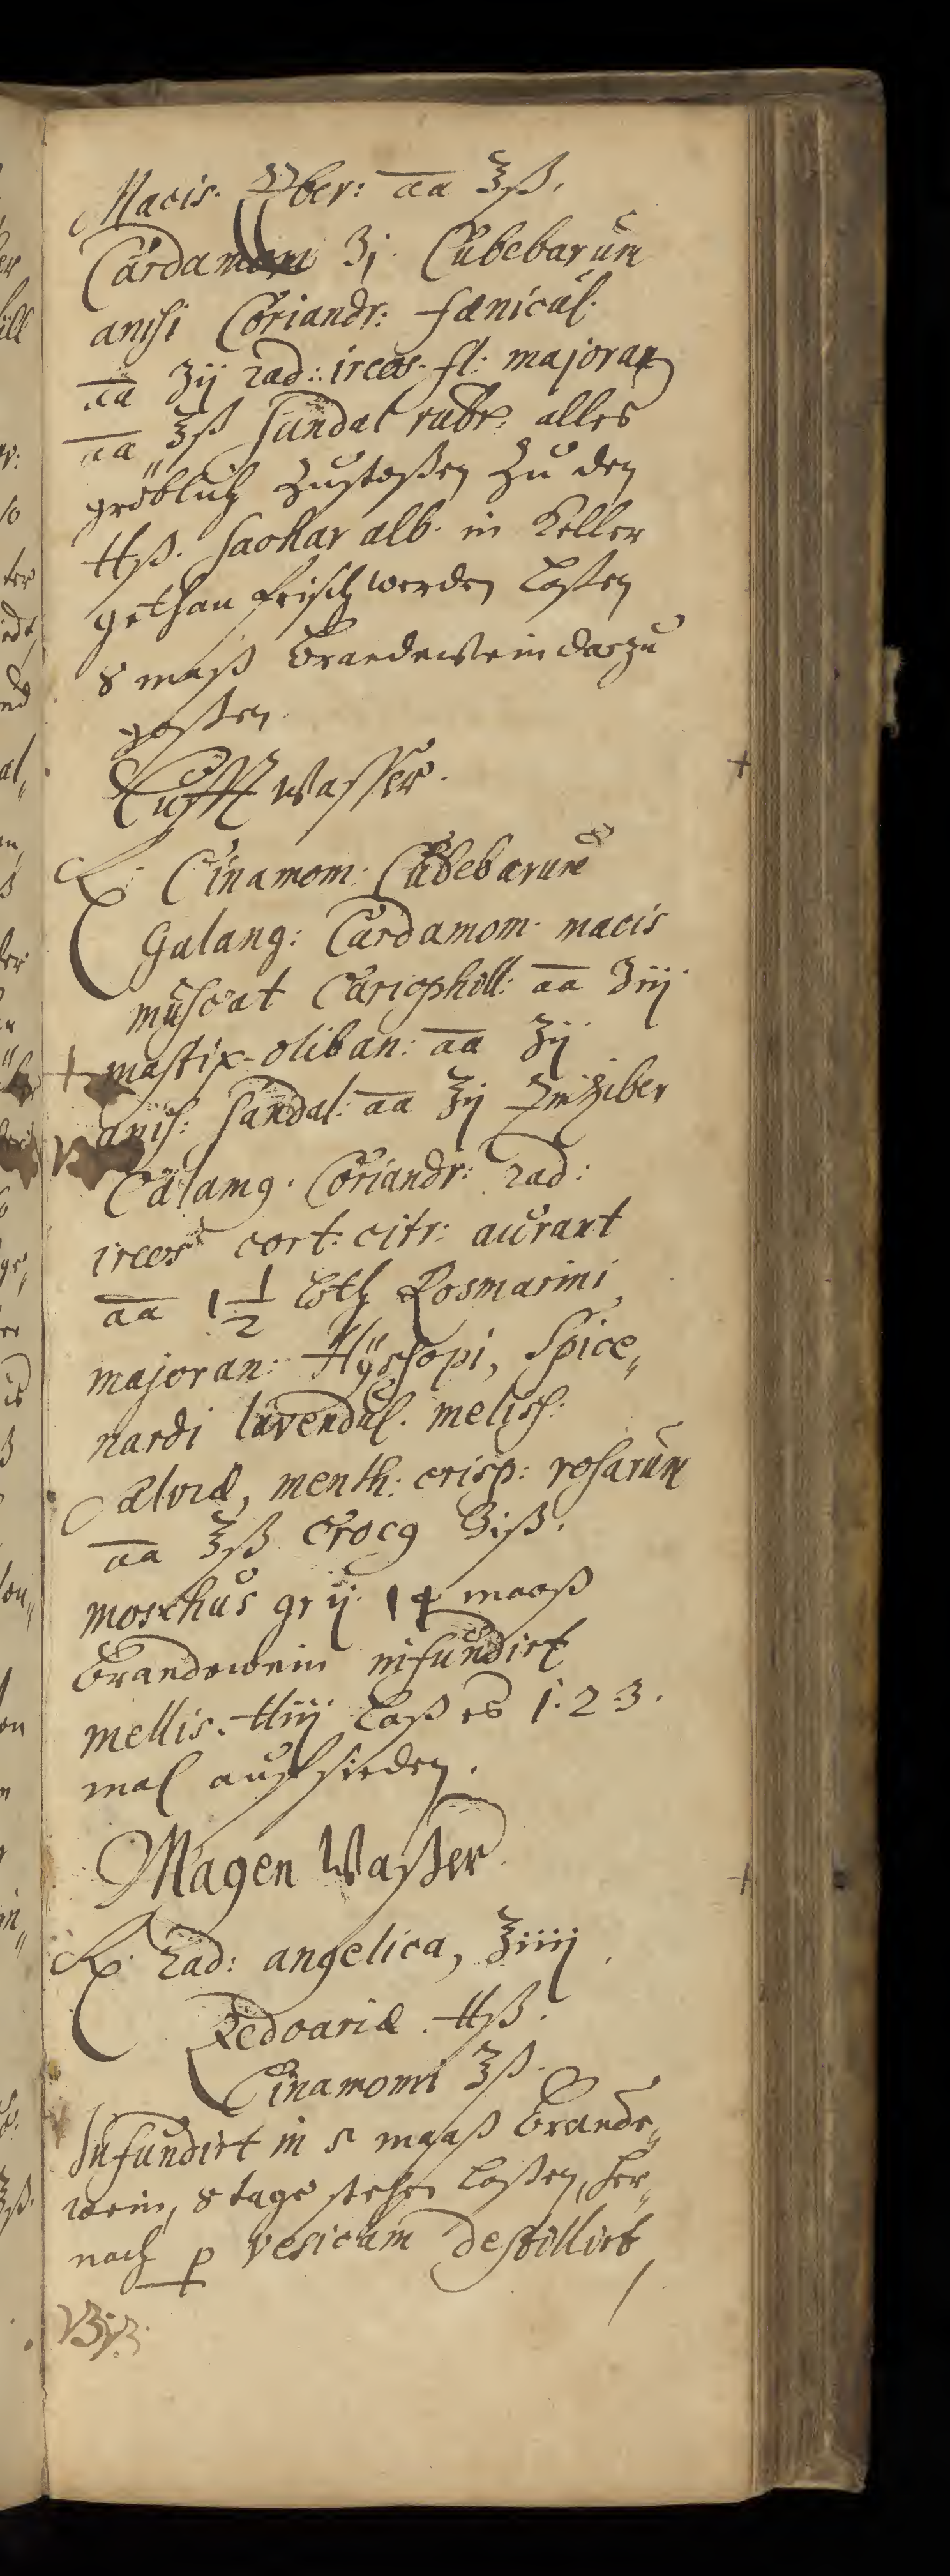 Macis. Ziber: aa ℥ß.
Cardamom ʒj. Cubebarum
anisi Coriandr: fænicul.
aa ʒij rad: ireos. fl: majoran
aa ℥ß Sandal rubr: alles
gröblich Zustoßen Zu den
℔ß. Sachar alb. in Keller
gethan frisch werden laßen
8 maß Brandewein darzu
goßen.
Lufft Wasser.
℞. Cinamom. Cubebarum
Galang: Cardamom. macis
muscat Cariophill: aa ʒiij
mastix. oliban: aa ʒij
anis: Sandal: aa ʒij Zinziber
Calamq. Coriandr: rad:
ireos cort: citr: aurant
aa 1 1/2 Loth Rosmarini
majoran: Hÿssopi, Spice„
nardi lavendul. meliss:
Salviæ, menth: crisp: rosarum
aa ℥ß Crocq ʒiß.
moschus gr ij. 14 maaß
Brandewein infundirt
mellis. ℔iij Laß es 1. 2. 3.
mal auffsieden.
Magen Waßer.
℞. Rad: angelica, ℥iiij
Zedoariæ. ℔ß.
Cinamomi ℥ß.
Infundirt in 5 maaß Brande„
wein, 8 tage stehen laßen, her„
nach p vesicam destillirt